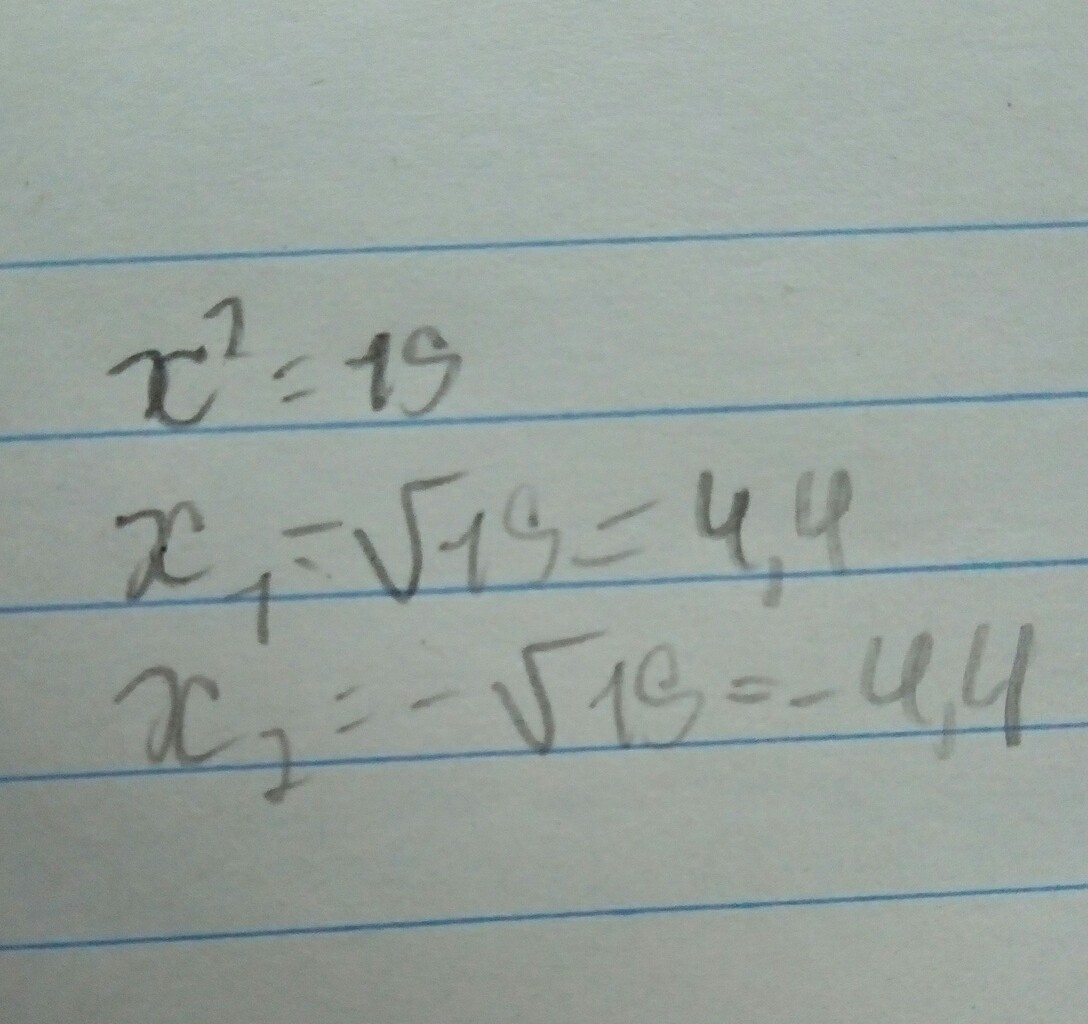 x² = 19
x₁ = √19 = 4,4
x₂ = - √19 = - 4,4